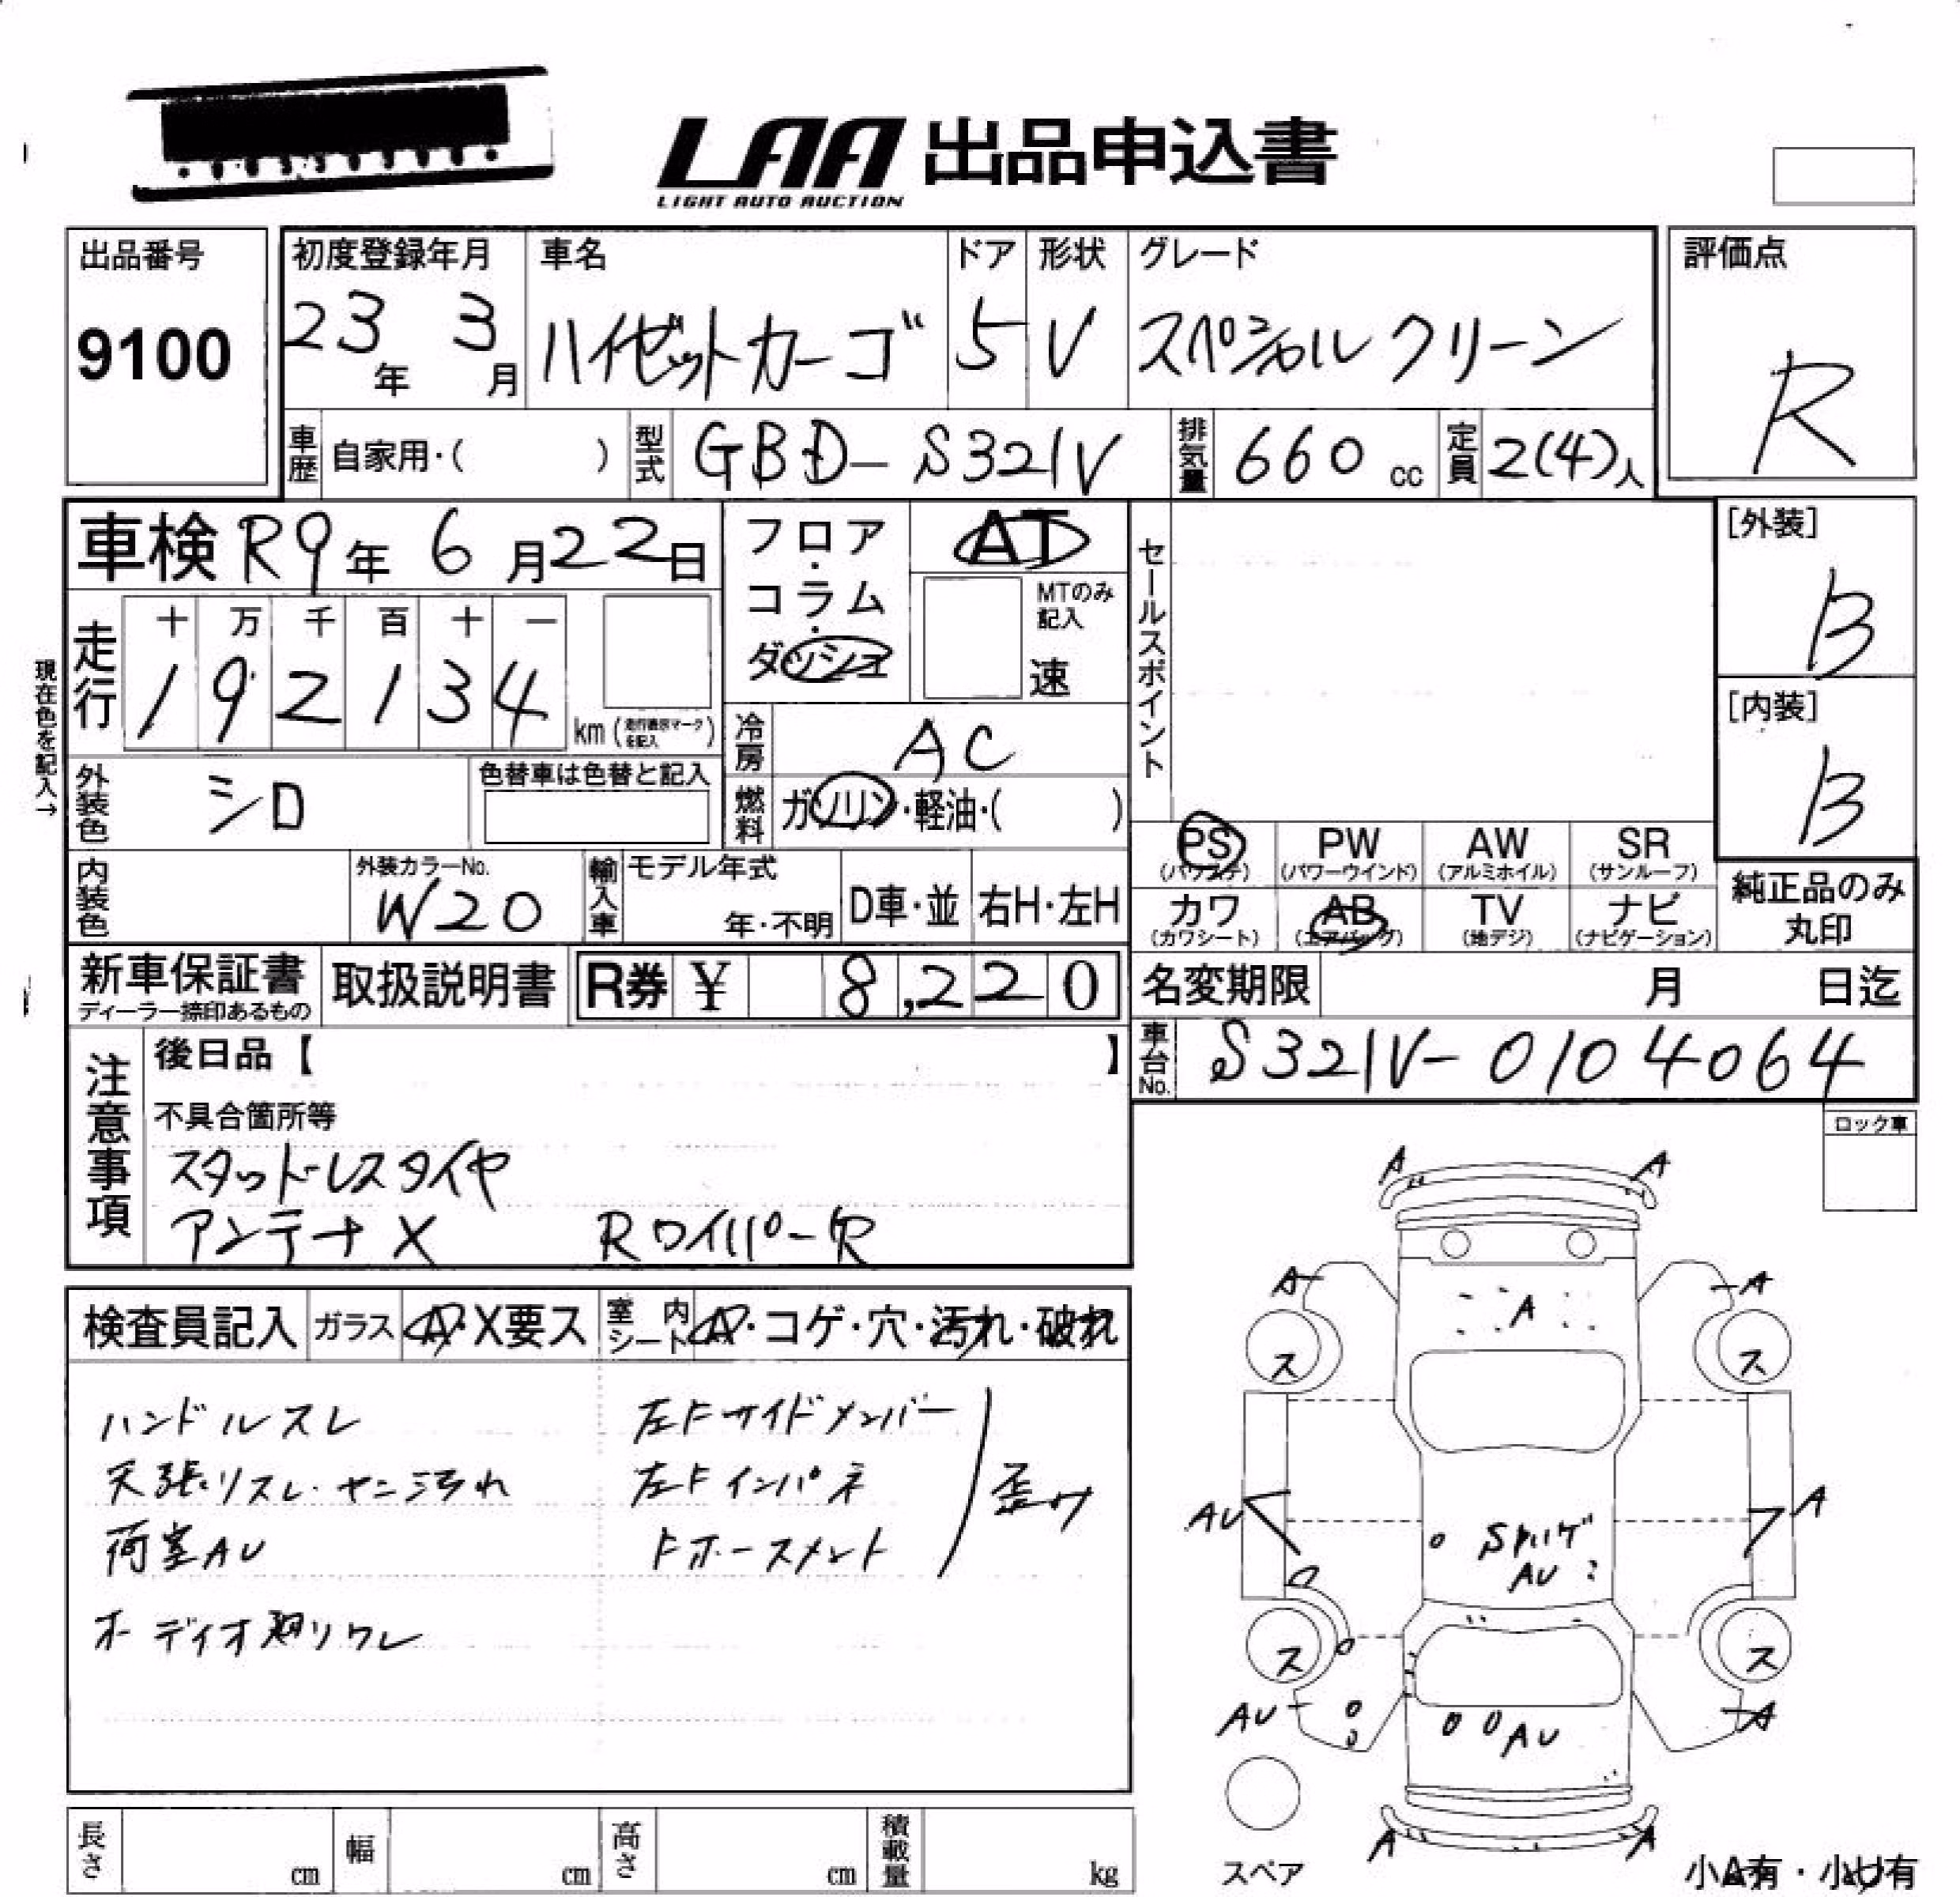 LAA 出品申込書
LIGHT AUTO AUCTION
出品番号
9100
初度登録年月
23年 3月
車名
ハイゼットカーゴ
ドア
5
形状
V
グレード
スペシャルクリーン
評価点
R
車歴 自家用・( )
型式 GBD-S321V
排気量 660 cc
定員 2(4)人
車検 R9年 6月22日
フロア・コラム・ダッシュ
AT
MTのみ記入
速
セールスポイント
[外装]
B
[内装]
B
現在色を記入→
走行
十 万 千 百 十 一
1 9 2 1 3 4
km(走行表示マークを記入)
冷房 AC
外装色 シロ
色替車は色替と記入
燃料 ガソリン・軽油・( )
PS (パワステ)
PW (パワーウインド)
AW (アルミホイル)
SR (サンルーフ)
カワ (カワシート)
AB (エアバック)
TV (地デジ)
ナビ (ナビゲーション)
純正品のみ丸印
内装色
外装カラーNo.
W20
輸入車
モデル年式
年・不明
D車・並
右H・左H
新車保証書
ディーラー捺印あるもの
取扱説明書
R券 ¥ 8,220
名変期限 月 日迄
車台No. S321V-0104064
注意事項
後日品【 】
不具合箇所等
スタッドレスタイヤ
アンテナX Rワイパー欠
ロック車
検査員記入
ガラス A・X要ス
室内シート A・コゲ・穴・汚れ・破れ
ハンドルスレ
天張リスレ・ヤニ汚れ
荷室AU
オーディオ廻リワレ
左Fサイドメンバー
左Fインパネ
Fホースメント
歪み
A A
A A
A
ス ス
AU A
Sハゲ
AU
ス ス
AU A
AU
A A
スペア
小A有・小U有
長さ cm
幅 cm
高さ cm
積載量 kg